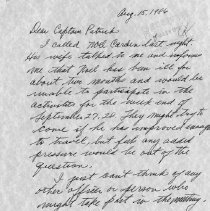 Aug. 15, 1986
Dear Captain Patrick
I called Noel Carden last night.
His wife talked to me and informed
me that Noel has been ill for
about two months and would be
unable to participate in the
activities for the week end of
September 27, 28. They might try to
come if he has improved enough
to travel, but felt any added
pressure would be out of the
question.
I just can't think of any
other officer or person who
might take part in the meeting.